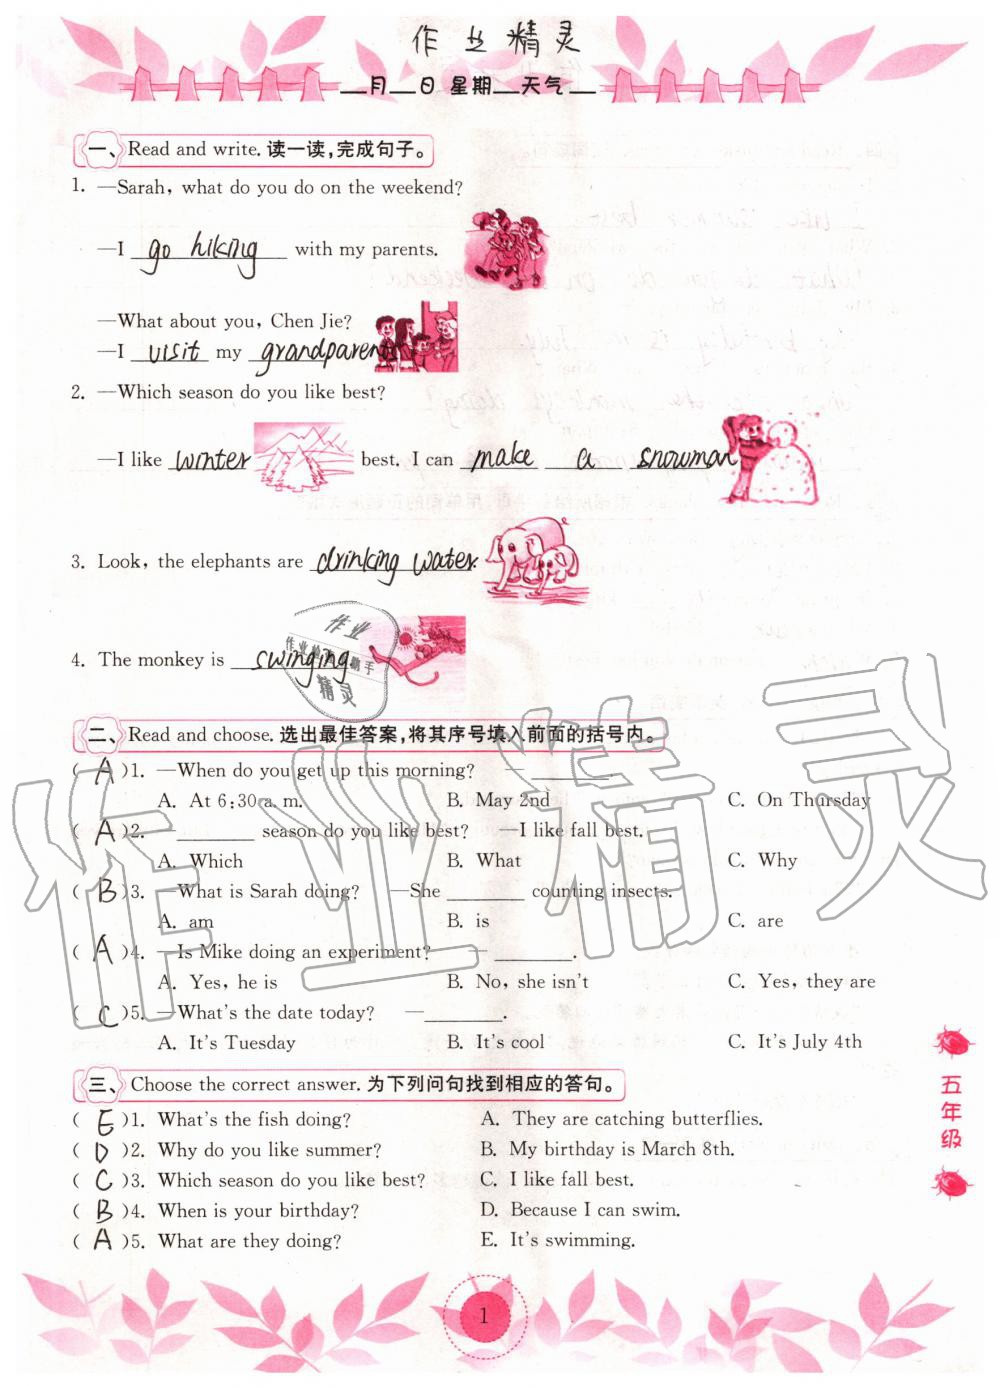 作业精灵
__月__日 星期__天气__
一、Read and write. 读一读,完成句子。
1. —Sarah, what do you do on the weekend?
—I go hiking with my parents.
—What about you, Chen Jie?
—I visit my grandparents
2. —Which season do you like best?
—I like winter best. I can make a snowman
3. Look, the elephants are drinking water.
4. The monkey is swinging
作业
精灵
二、Read and choose. 选出最佳答案,将其序号填入前面的括号内。
( A )1. —When do you get up this morning? —________.
A. At 6:30 a. m. B. May 2nd C. On Thursday
( A )2. —________ season do you like best? —I like fall best.
A. Which B. What C. Why
( B )3. —What is Sarah doing? —She ________ counting insects.
A. am B. is C. are
( A )4. —Is Mike doing an experiment? —________.
A. Yes, he is B. No, she isn't C. Yes, they are
( C )5. —What's the date today? —________.
A. It's Tuesday B. It's cool C. It's July 4th
三、Choose the correct answer. 为下列问句找到相应的答句。
( E )1. What's the fish doing? A. They are catching butterflies.
( D )2. Why do you like summer? B. My birthday is March 8th.
( C )3. Which season do you like best? C. I like fall best.
( B )4. When is your birthday? D. Because I can swim.
( A )5. What are they doing? E. It's swimming.
五年级
1
作业精灵